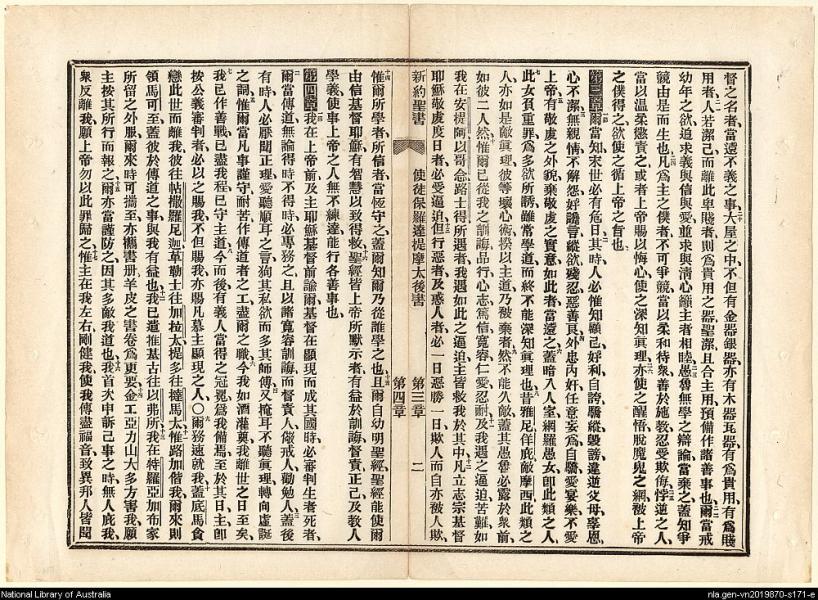 督之名者當遠不義之事大屋之中不但有金器銀器亦有木器瓦器有爲貴用有爲賤
用者人若潔己而離此卑賤者則爲貴用之器聖潔且合主用預備作諸善事也爾當戒
幼年之欲追求義與信與愛並求與清心籲主者相睦愚魯無學之辯論當棄之蓋知爭
競由是而生也凡爲主之僕者不可爭競當以柔和待衆善於施敎忍受欺侮悖道之人
當以温柔懲責之或者上帝賜以悔心使之深知眞理亦使之醒悟脫魔鬼之網被上帝
之僕得之欲使之循上帝之旨也
第三章爾當知末世必有危日其時人必惟知顧己好利自誇驕縱毁謗違逆父母辜恩
心不潔無親情不解怨好讒言縱欲殘忍惡善良外忠內奸任意妄爲自驕愛宴樂不愛
上帝有敬虔之外貌棄敬虔之實意如此者當遠之蓋暗入人室網羅愚女卽此類之人
此女負重罪爲多欲所誘雖常學道而終不能深知眞理也昔雅尼佯庇敵摩西此類之
人亦如是敵眞理彼等壞心術揆以主道乃被棄者然不能久敵蓋其愚魯必露於衆前
如彼二人然惟爾已從我之訓誨品行心志篤信寬容仁愛忍耐及我遇之逼迫苦難如
我在安提阿以哥念路士得所遇者我遇如此之逼迫主皆救我於其中凡立志宗基督
耶穌敬虔度日者必受逼迫但行惡者及惑人者必一日惡勝一日欺人而自亦被人欺
新約聖書 使徒保羅達提摩太後書 第三章 第四章 二
惟爾所學者所信者當恆守之蓋爾知乃從誰學之也且爾自幼明聖經聖經能使爾
由信基督耶穌有智慧以致得救聖經皆上帝所默示者有益於訓誨督責正己及敎人
學義使事上帝之人無不練達能行各善事也
第四章我在上帝前及主耶穌基督前諭爾基督在顯現而成其國時必審判生者死者
爾當傳道無論得時不得時必專務之且以諸寬容訓誨而督責人儆戒人勸勉人蓋後
有時人必厭聞正理愛聽順耳之言狥其私欲而多其師傅又掩耳不聽眞理轉向虛誕
之詞惟爾當凡事謹守而耐苦作傳道者之工盡爾之職今我如酒灌奠我離世之日至矣
我已作善戰已盡我程已守主道今而後有義人當得之冠冕爲我備焉至於其日主卽
按公義審判者必以之賜我不但賜我亦賜凡慕主顯現之人〇爾務速就我蓋底馬貪
戀此世而離我彼往帖撒羅尼迦革勒士往加拉太提多往撻馬太惟路加偕我爾來則
領馬可至蓋彼於傳道之事與我有益也我已遣推基古往以弗所我在特羅亞加布家
所留之外服爾來時可攜至亦攜書册羊皮之書卷爲更要金工亞力山大多方害我願
主按其所行而報之爾亦當謹防之因其多敵我道也我首次申訴己事之時無人庇我
衆反離我願上帝勿以此罪歸之惟主在我左右剛健我使我傳盡福音致異邦人皆聞
National Library of Australia
nla.gen-vn2019870-s171-e